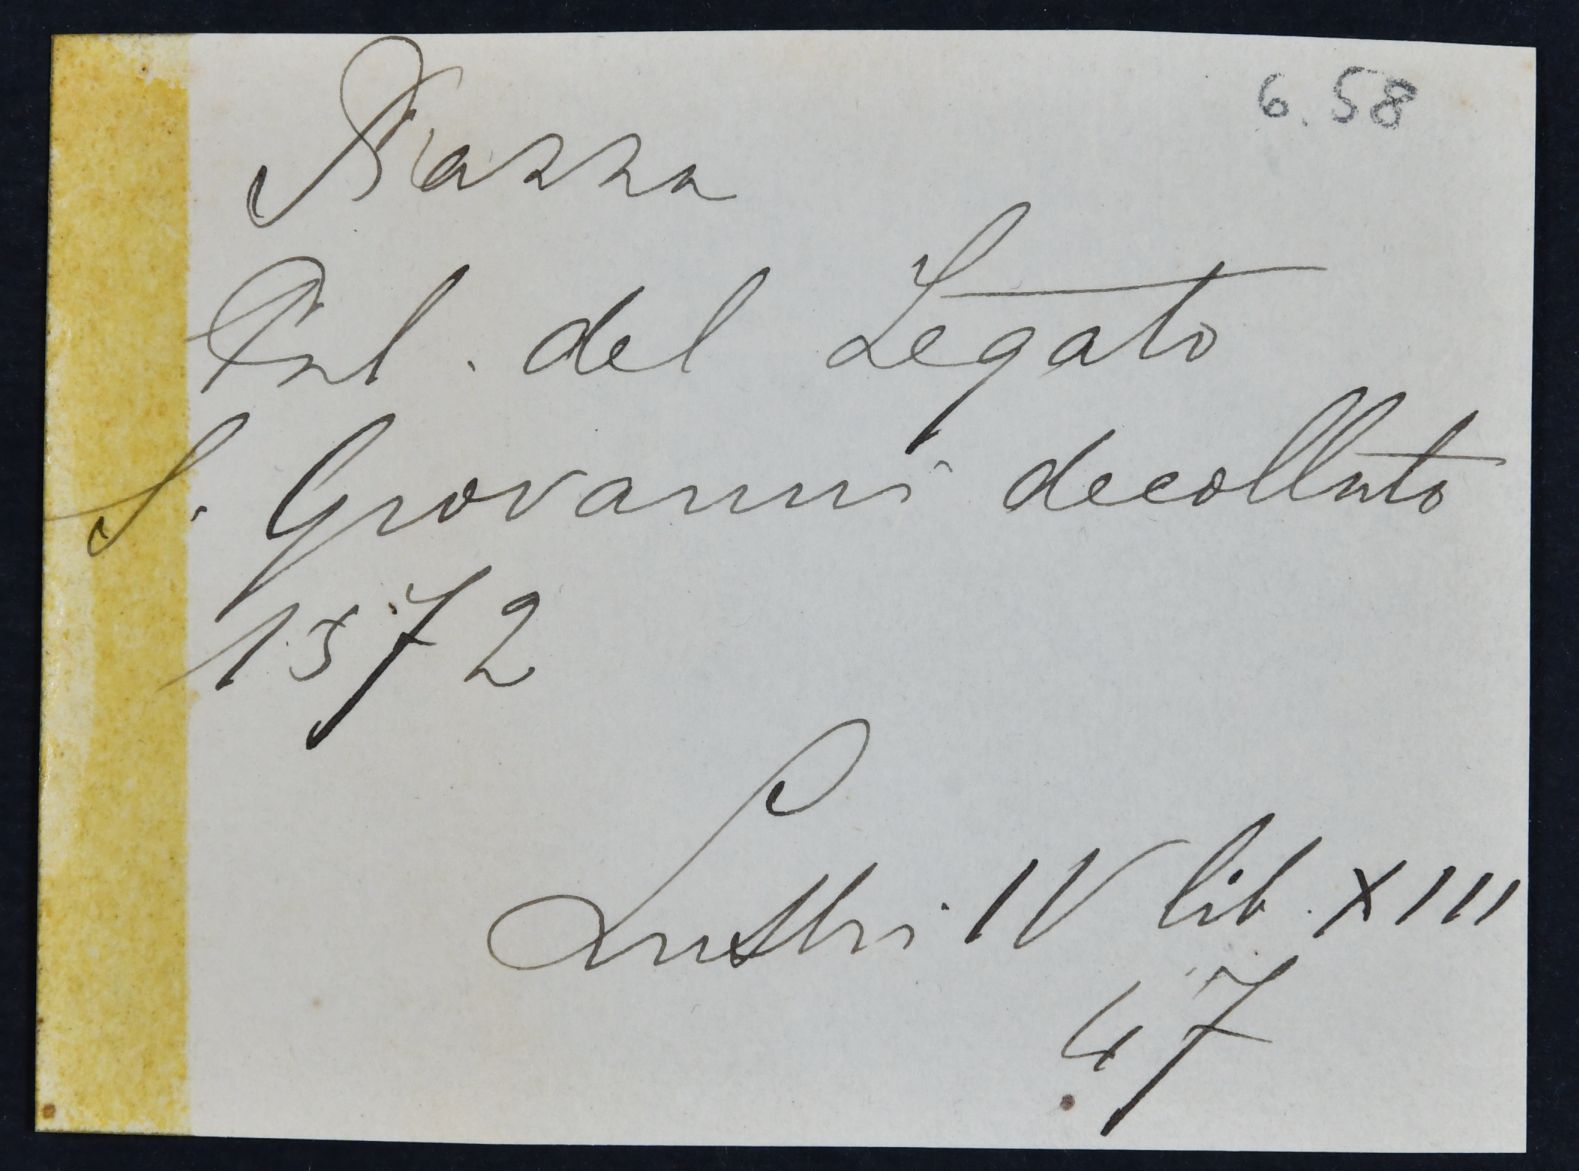 6.58
Piazza
Pal. del Legato
S. Giovanni decollato
1572
Lustri IV lib. XIII
47